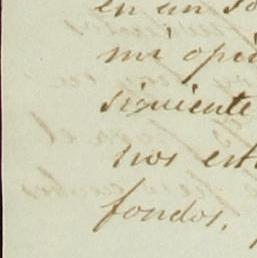 en un so
mi opi
siguiente
nos est
fondos,